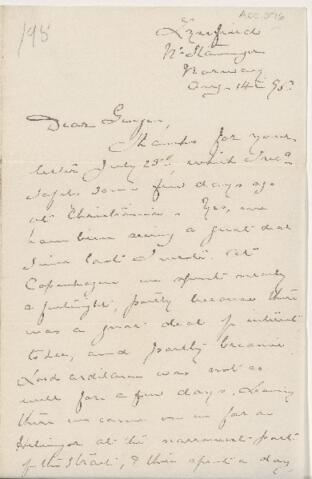 198
ACC 5/16
Nr Stavanger
Norway
Aug. 14th 95.
Dear
Thanks for your
letter July 23rd, which I recd
safely some few days ago
at Christiania. Yes, we
have been seeing a great deal
since last I wrote. At
Copenhagen we spent nearly
a fortnight, partly because there
was a great deal of interest
to see, and partly because
Lord Ardilaun was not so
well for a few days. Leaving
there we came on as far as
Helsingor at the narrowest part
of the Strait, & then spent a day